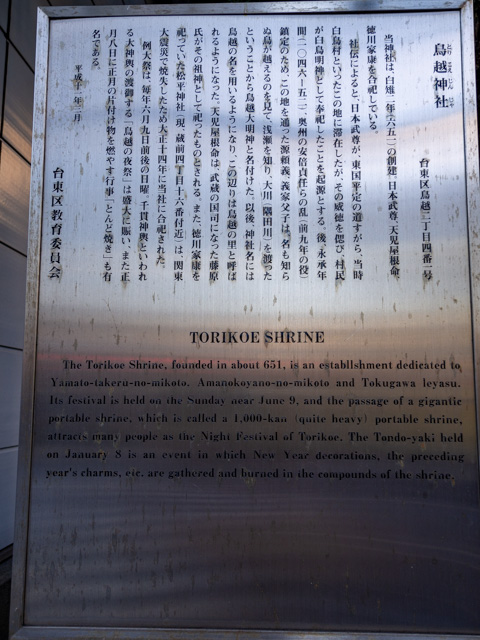 鳥越神社
とりこえじんじゃ
台東区鳥越二丁目四番一号
当神社は、白雉二年(六五一)の創建。日本武尊、天児屋根命、
徳川家康を合祀している。
社伝によると、日本武尊が、東国平定の道すがら、当時
白鳥村といったこの地に滞在したが、その威徳を偲び、村民
が白鳥明神として奉祀したことを起源とする。後、永承年
間(一〇四六-五二)、奥州の安倍貞任らの乱(前九年の役)
鎮定のため、この地を通った源頼義、義家父子は、名も知ら
ぬ鳥が越えるのを見て、浅瀬を知り、大川(隅田川)を渡った
ということから鳥越大明神と名付けた。以後、神社名には
鳥越の名を用いるようになり、この辺りは鳥越の里と呼ば
れるようになった。天児屋根命は、武蔵の国司になった藤原
氏がその祖神として祀ったものとされる。また、徳川家康を
祀っていた松平神社(現、蔵前四丁目十六番付近)は、関東
大震災で焼失したため大正十四年に当社に合祀された。
例大祭は、毎年六月九日前後の日曜、千貫神輿といわれ
る大神輿の渡御する「鳥越の夜祭」は盛大に賑い、また正
月八日に正月の片付け物を燃やす行事「とんど焼き」も有
名である。
平成十一年三月
台東区教育委員会
TORIKOE SHRINE
The Torikoe Shrine, founded in about 651, is an establishment dedicated to
Yamato-takeru-no-mikoto, Amanokoyano-no-mikoto and Tokugawa Ieyasu.
Its festival is held on the Sunday near June 9, and the passage of a gigantic
portable shrine, which is called a 1,000-kan (quite heavy) portable shrine,
attracts many people as the Night Festival of Torikoe. The Tondo-yaki held
on January 8 is an event in which New Year decorations, the preceding
year's charms, etc. are gathered and burned in the compounds of the shrine.